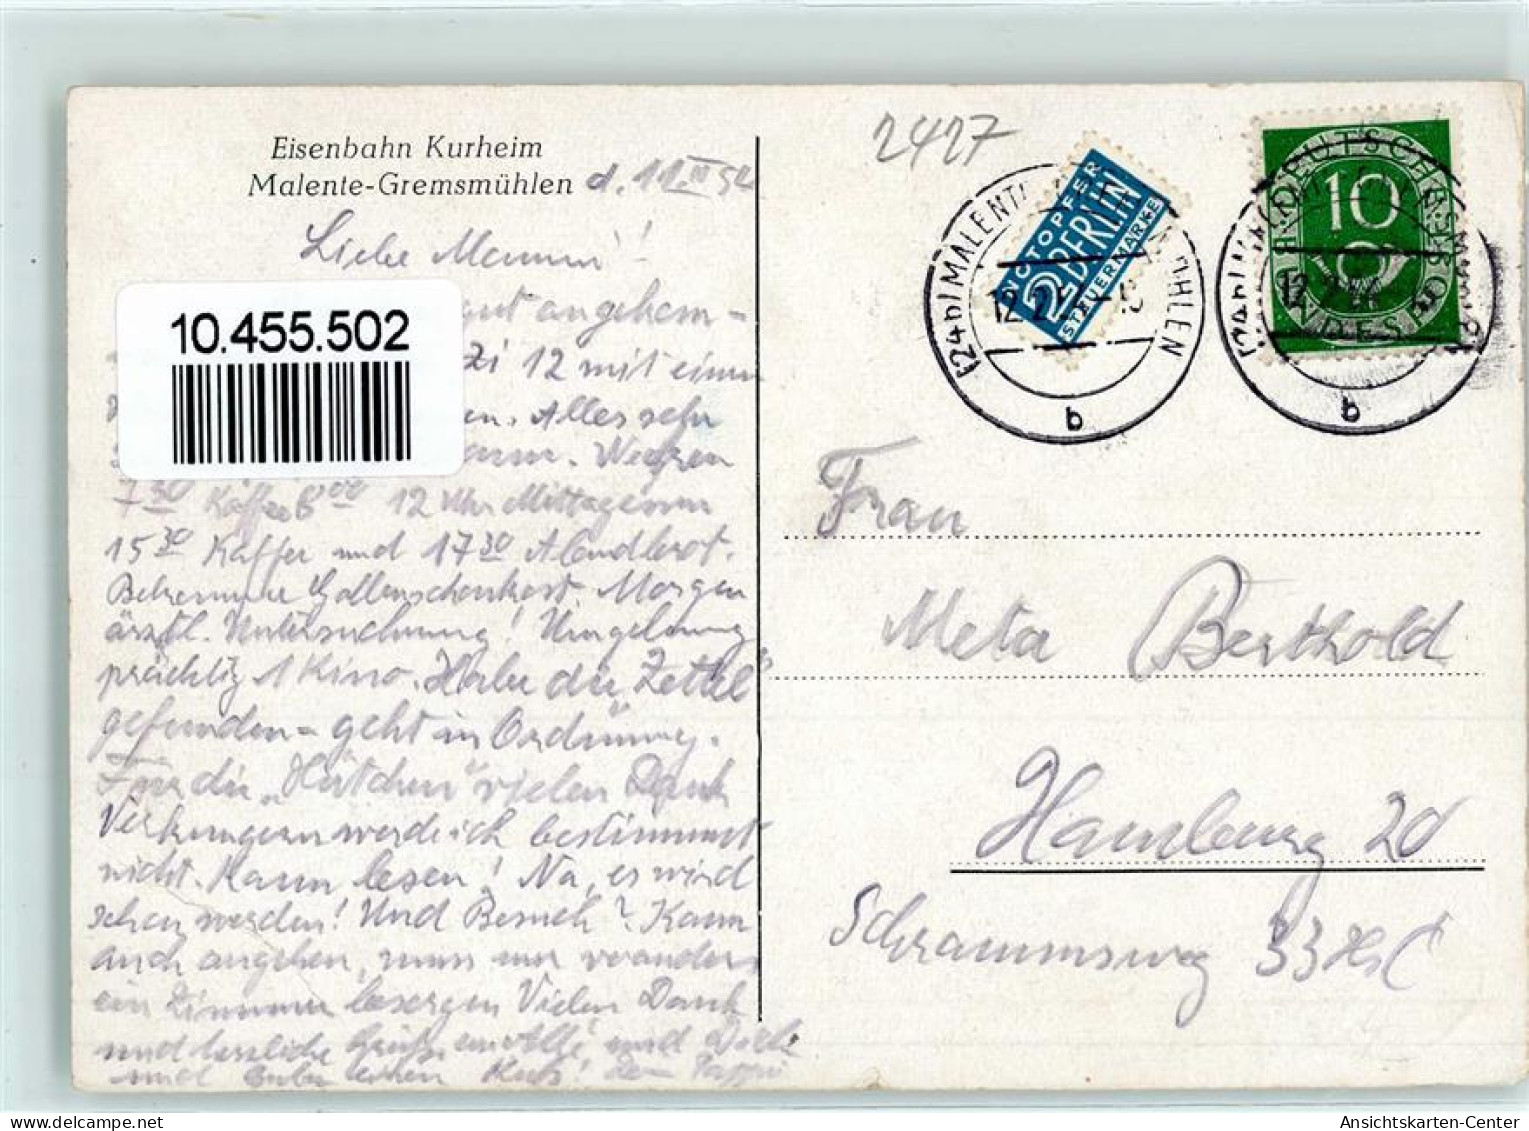 Eisenbahn Kurheim
Malente-Gremsmühlen d. 11.II 54
2427
NOTOPFER
2 BERLIN
STEUERMARKE
(24b) MALENTE
MÜHLEN
12.2.54
b
DEUTSCHE
10
BUNDESPOST
12.2.54
b
Liebe Mammi!
10.455.502
gut angekom-
Zi 12 mit einem
en. Alles sehr
warm. Wecken
7 30 Kaffee 8 00 12 Uhr Mittagessen
15 30 Kaffee und 17 30 Abendbrot.
Bekomme Gallenschonkost. Morgen
ärztl. Untersuchung! Umgebung
prächtig 1 Kino. Habe die Zettel
gefunden - geht in Ordnung.
Für die „Hütchen" vielen Dank
Verhungern werde ich bestimmt
nicht. Kaum lesen! Na, es wird
schon werden! Und Besuch? Kann
auch angehen, muss nur woanders
ein Zimmer besorgen Vielen Dank
und herzliche Grüße an Alle und Dich
und einen lieben Kuß! Dein Pappi
Frau
Meta Berthold
Hamburg 20
Schrammsweg 33
Ansichtskarten-Center